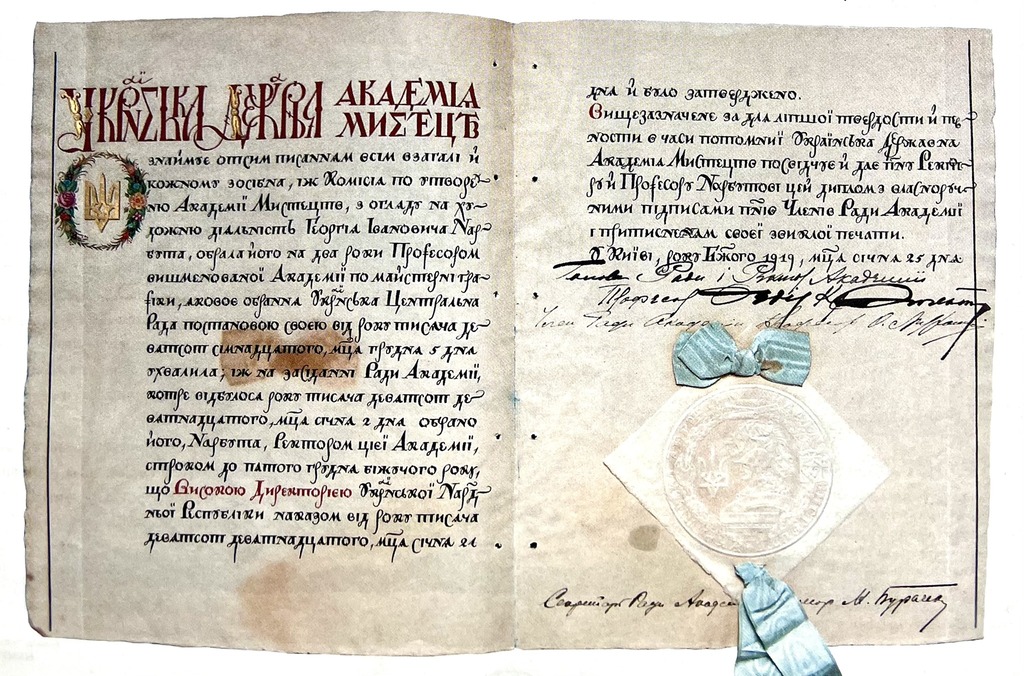 Українська Державна АКАДЕМІЯ
МИСТЕЦТВ
ознаймує отсим писаннам всім взагалі й
кожному зосібна, іж Комісія по утворе-
ню Академії Мистецтв, з огляду на ху-
дожню діальність Георгія Івановича Нар-
бута, обрала його на два роки Професором
вишменованої Академії по майстерні гра-
фіки, аковое обрання Украінська Центральна
Рада постановою своею від року тисяча де-
ватсот сімнадцатого, мца грудна 5 дна
ухвалила; іж на засіданні Ради Академії,
котре відбулося року тисача деватсот де-
ватнадцатого, мца січна 2 дна обрано
його, Нарбута, Ректором цієї Академії,
строком до патого грудна біжучого року,
що Високою Директорією Украінської Народ-
ньої Республіки наказом від року тисача
деватсот деватнадцатого, мца січна 21
дна й було затверджено.
Вищезазначене за для ліпшої твердости й пев-
ности в часи потомнії Українська Державна
Академія Мистецтв посвідчує й дає пну Ректо-
ру й Професору Нарбутові цей диплом з власноруч-
ними підписами пнів Членів Ради Академії
і притисненам своєї звиклої печати.
У Київі, року Божого 1919, мца січна 25 дна
Голова Ради і Ректор Академії
Професор
Член Ради Академії Професор
Секретарь Ради М. Бурачек